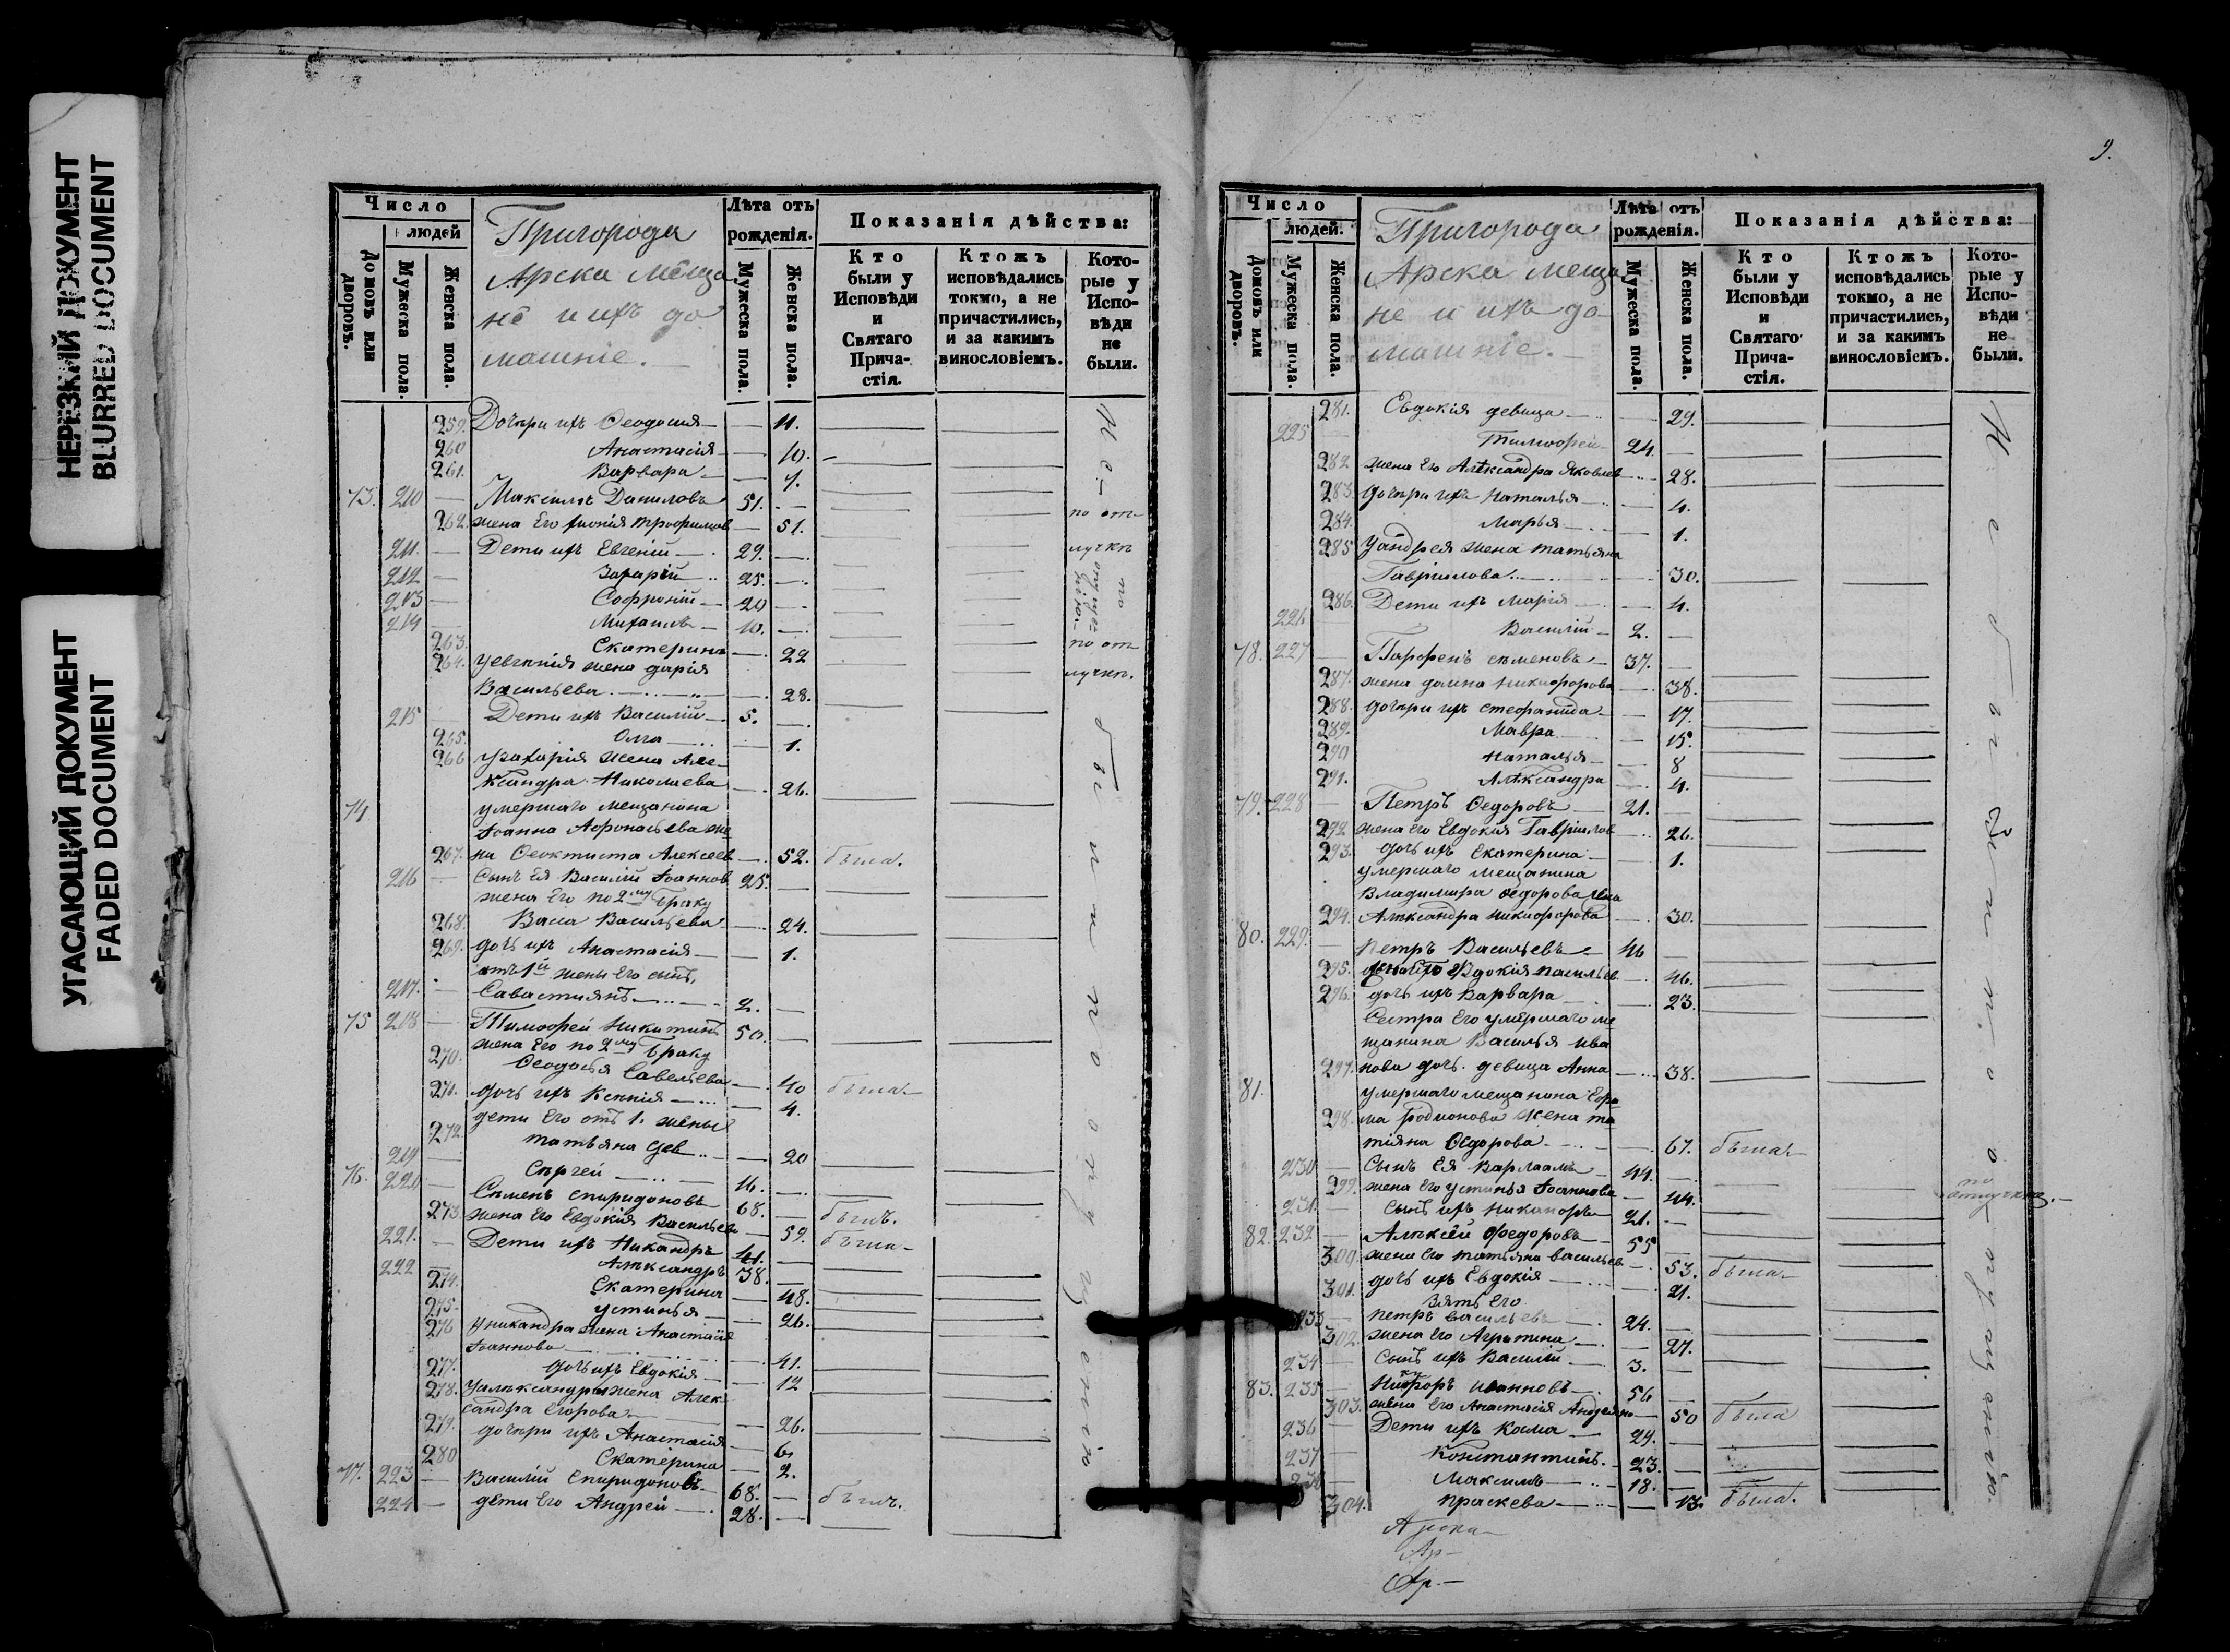 НЕРЕЗКИЙ ДОКУМЕНТ
BLURRED DOCUMENT
УГАСАЮЩИЙ ДОКУМЕНТ
FADED DOCUMENT
Число
людей
Домовъ или дворовъ.
Мужеска пола.
Женска пола.
Пригорода
Арска меща
не и ихъ до
машніе.
Лѣта отъ рожденія.
Мужеска пола.
Женска пола.
Показанія дѣйства:
Кто были у Исповѣди и Святаго Прича-стія.
Ктожъ исповѣдались токмо, а не причастились, и за какимъ винословіемъ.
Кото-рые у Испо-вѣди не были.
259. Дочери ихъ Ѳеодосия — 11.
260 Анастасія — 10.
261. Варвара — 7.
73. 210 — Максимъ Даниловъ 51. —
262. жена Его Трофимов — 51. по от-
211. — Дети ихъ Евгеній — 29. — лучкѣ
212 — Захарій 25. —
213 — Софроній — 20 —
214 — Михаилъ — 10. —
263. Екатерина — 22 по от
264. У Евгенія жена Дарія лучкѣ.
Васильева — 28.
215 Дети ихъ Василій — 5. —
265. Олга — 1.
266 У Захарія жена Але-
ксандра Николаева — 26.
74 умершаго мещанина
Іоанна Афонасьева же
267. на Ѳеоктиста Алексеев — 52. была.
216 — Сынъ Ея Василій Іоаннов 25. —
жена Его по 2му браку
268. Васса Васильева — 24.
269. дочь ихъ Анастасія — 1.
отъ 1й жены Его сынъ,
217. — Савастиянъ — 2. —
75 218 — Тимоѳей Никитинъ 50. —
жена Его по 2му браку
270. Ѳеодосья Савельева — 40 была
271. дочь ихъ Ксенія — 4.
дети Его отъ 1. жены
272. татьяна дев — 20
219 — Сергей — 16. —
76. 220 — Семенъ Спиридоновъ 68. — былъ.
273. жена Его Евдокія Васильева — 59. была
221. — Дети ихъ Никандръ 41. —
222 — Александръ 38. —
274. Екатерина — 48.
275. Устинья — 26.
276 У никандра жена Анастасія
Іоаннова — 41.
277. дочь ихъ Евдокія — 12
278. У александра жена Алек-
сандра Егорова — 26.
279. дочери ихъ Анастасія — 6.
280 Екатерина — 2.
77. 223 — Василій Спиридоновъ 68. — былъ.
224 — дети Его Андрей — 28. —
Не были по опущенію
9.
Число
людей.
Домовъ или дворовъ.
Мужеска пола.
Женска пола.
Пригорода
Арска меща
не и ихъ до
машніе.
Лѣта отъ рожденія.
Мужеска пола.
Женска пола.
Показанія дѣйства:
Кто были у Исповѣди и Святаго Прича-стія.
Ктожъ исповѣдались токмо, а не причастились, и за какимъ винословіемъ.
Кото-рые у Испо-вѣди не были.
281. Евдокія девица — 29.
225 — Тимоѳей — 24. —
282 жена Его Александра Яковлев — 28.
283. дочери ихъ Наталья — 4.
284. Марья — 1.
285 У андрея жена татьяна
Гавриилова — 30.
286. Дети ихъ Марія — 4.
226 Василій — 2. —
78. 227 — Парфенъ семеновъ — 37. —
287. жена домна никифорова — 38.
288. дочери ихъ стефанида — 17.
289. Мавра — 15.
290 Наталья — 8
291. Александра — 4.
79. 228 — Петръ Ѳедоровъ — 21. —
292 жена его Евдокія Гавриилов — 26.
293. дочь ихъ Екатерина — 1.
умершаго мещанина
Владимира Ѳедорова жена
294. Александра никифорова — 30.
80. 229. — Петръ Васильевъ — 46 —
295. жена Его Евдокія васильев — 46.
296. дочь ихъ Варвара — 23.
Сестра Его умершаго ме
щанина Василья ива
297. нова дочь девица Анна — 38.
81. умершаго мещанина Ефи
298. ма Родионова жена та
тіяна Ѳедорова — 67. была
230 — Сынъ Ея Варлаамъ — 44. —
299. жена Его устинья Іоаннова — 44.
по отлучкѣ.
231. — Сынъ ихъ Никаноръ 21. —
82. 232 — Алексей Федоровъ — 55 —
300. жена Его татьяна васильев — 53. была
301. дочь ихъ Евдокія — 21.
Зять Его
233 — Петръ васильевъ — 24. —
302. жена Его Агрипина — 27.
234 — Сынъ ихъ Василій — 3. —
83. 235 — Никифоръ ивановъ — 56 —
303. жена Его Анастасія — 50 была
236 — Дети ихъ Козма — 29. —
237 — Константинъ — 23. —
238 — Максимъ — 18. —
304. праскева — 13. была.
Не были по опущенію.
Арска
Ар—
Ар.—